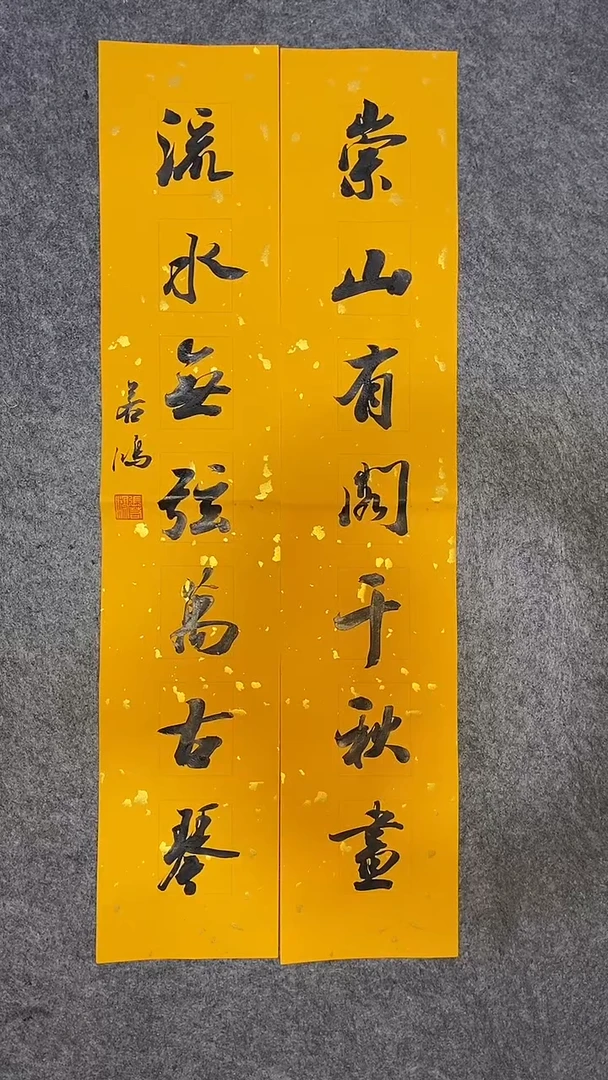 崇山有閣千秋畫
流水無弦萬古琴
若鴻